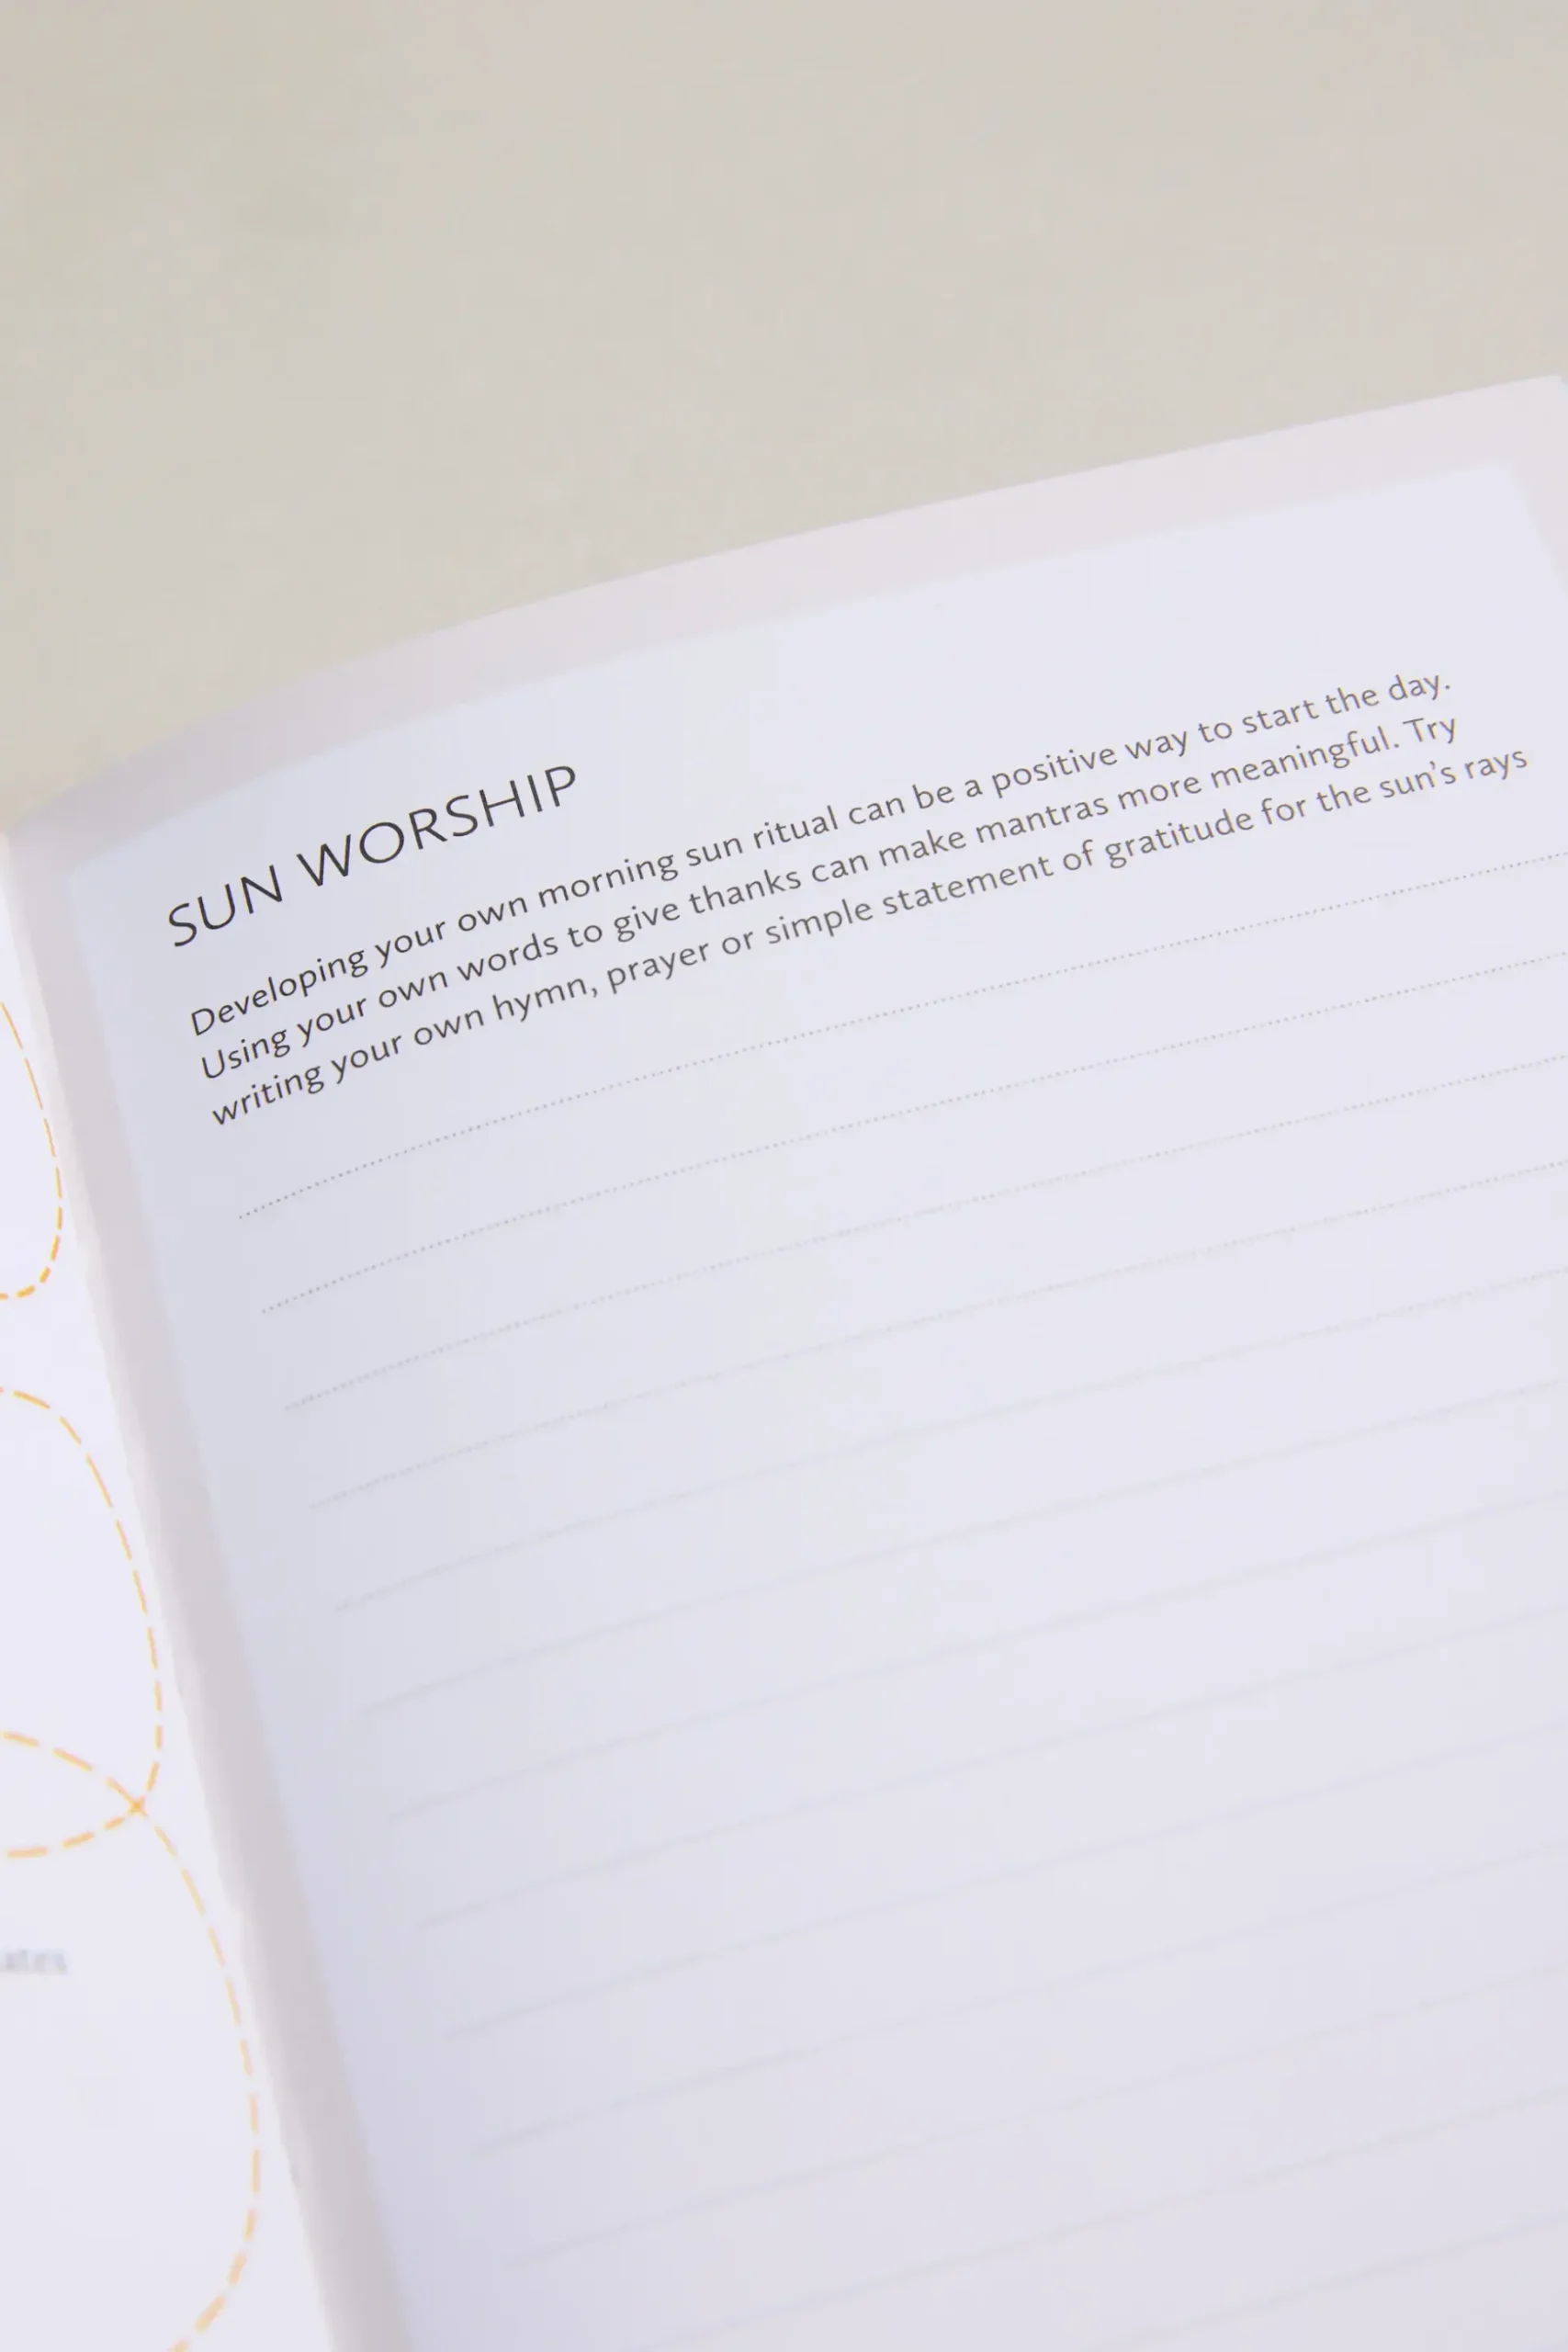 SUN WORSHIP
Developing your own morning sun ritual can be a positive way to start the day.
Using your own words to give thanks can make mantras more meaningful. Try
writing your own hymn, prayer or simple statement of gratitude for the sun's rays